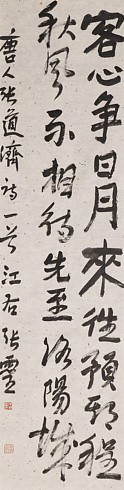 客心争日月來往預期程
秋风不相待先至洛陽城
唐人张道濟诗一首江右张